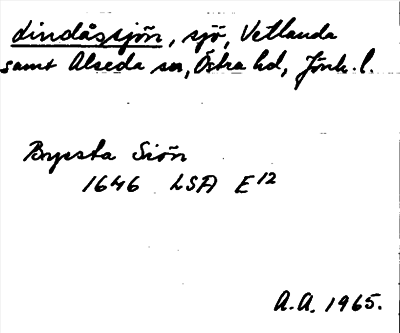 Lindåssjön, sjö, Vetlanda
samt Alseda sn, Östra hd, Jönk. l.
Brysta Siön
1646 LSA E12
A.A. 1965.